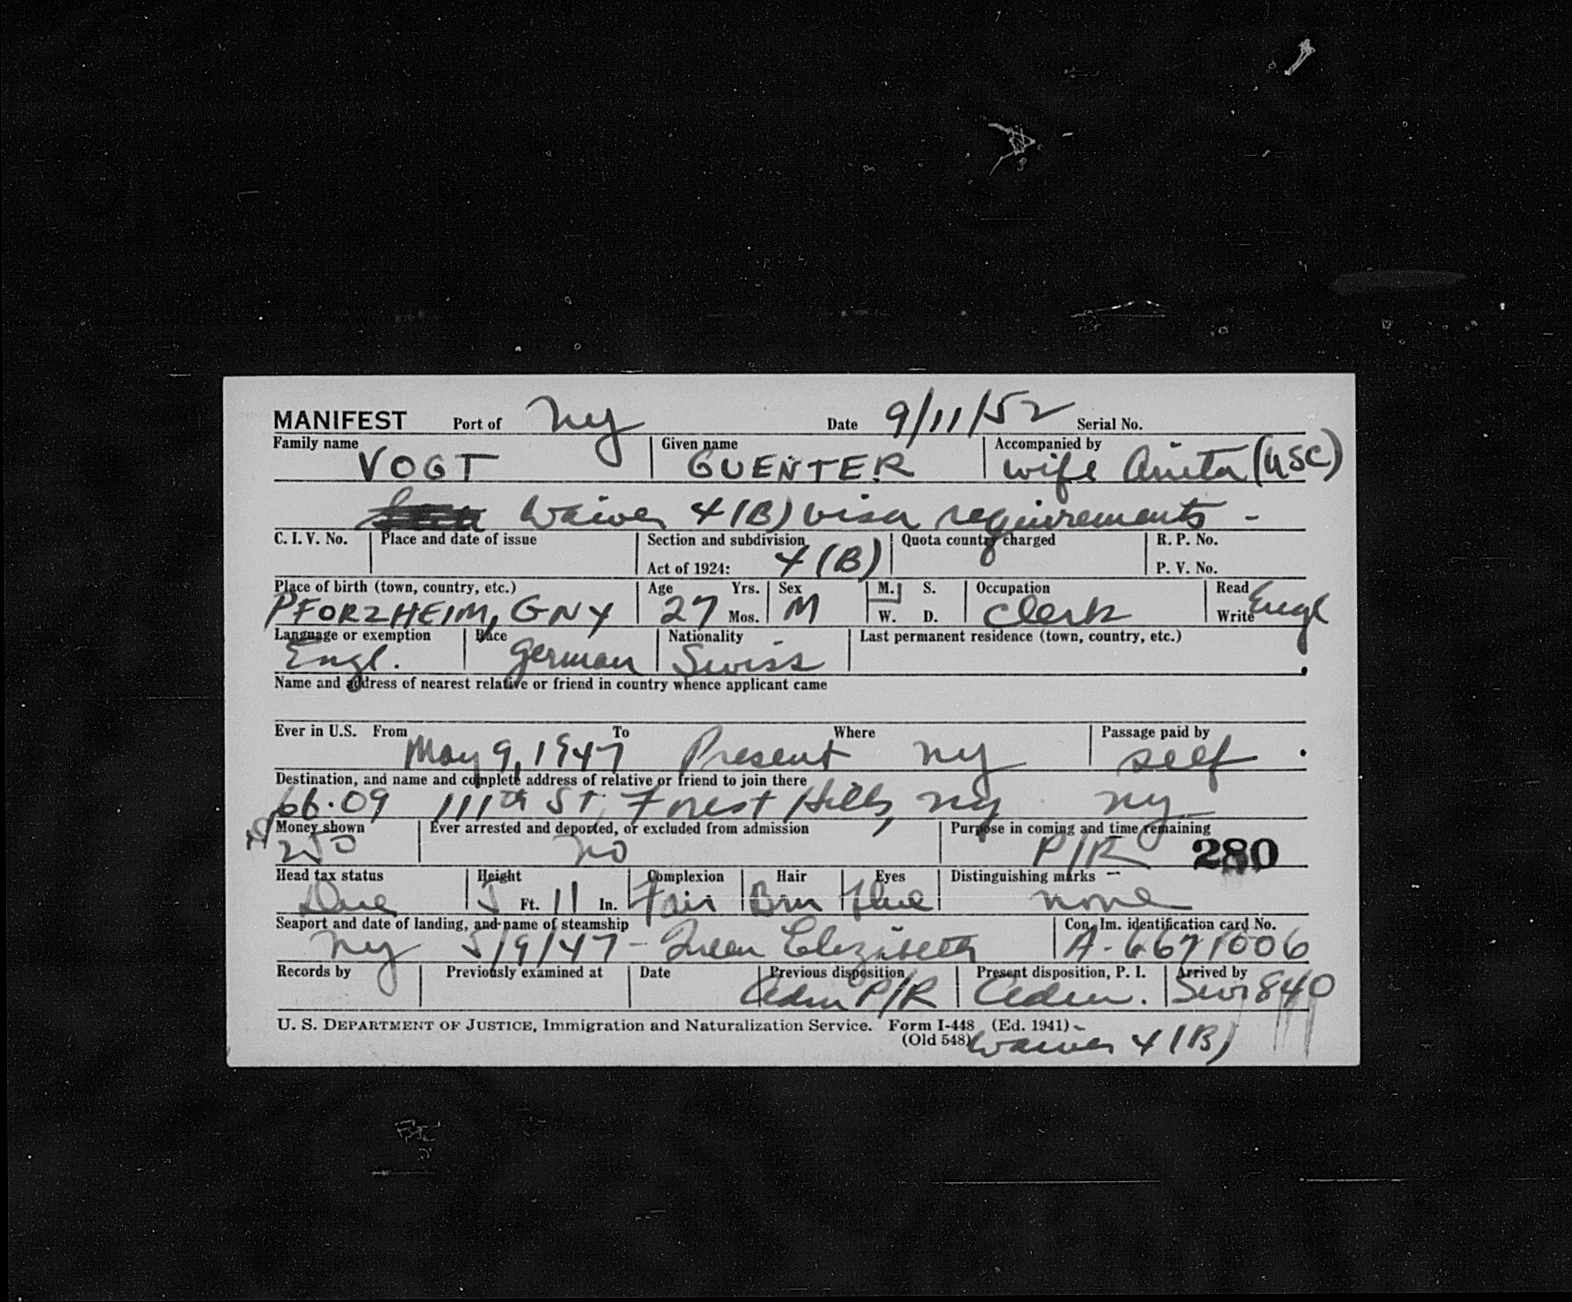 MANIFEST Port of NY Date 9/11/52 Serial No.
Family name Given name Accompanied by
VOGT GUENTER wife Anita (USC)
Waiver 4(B) visa requirements -
C. I. V. No. Place and date of issue Section and subdivision Quota country charged R. P. No.
Act of 1924: 4(B) P. V. No.
Place of birth (town, country, etc.) Age Yrs. Sex M. S. Occupation Read
PFORZHEIM, GNY 27 Mos. M W. D. Clerk Write Engl
Language or exemption Race Nationality Last permanent residence (town, country, etc.)
Engl. German Swiss
Name and address of nearest relative or friend in country whence applicant came
Ever in U.S. From To Where Passage paid by
May 9, 1947 Present NY self
Destination, and name and complete address of relative or friend to join there
66-09 111th St, Forest Hills, NY NY
Money shown Ever arrested and deported, or excluded from admission Purpose in coming and time remaining
no P/R 280
Head tax status Height Complexion Hair Eyes Distinguishing marks
Due 5 Ft. 11 In. Fair Brn Blue none
Seaport and date of landing, and name of steamship Con. Im. identification card No.
NY 5/9/47 - Queen Elizabeth A-6671006
Records by Previously examined at Date Previous disposition Present disposition, P. I. Arrived by
Adm P/R Adm. Swr 840
U. S. DEPARTMENT OF JUSTICE, Immigration and Naturalization Service. Form I-448 (Ed. 1941)
(Old 548) Waiver 4(B)